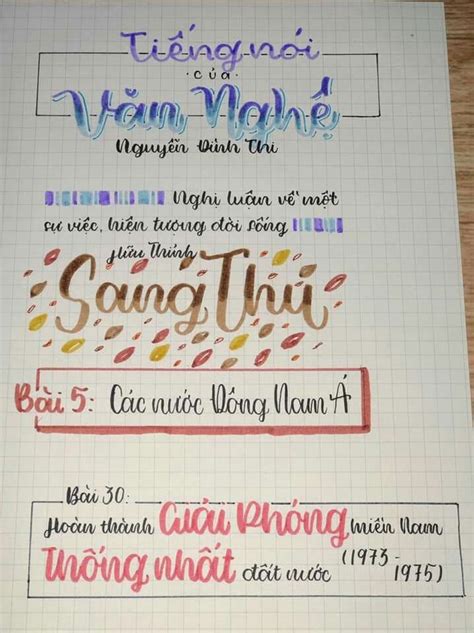 Tiếng nói
của
Văn Nghệ
Nguyễn Đình Thi
Nghị luận về một
sự việc, hiện tượng đời sống
Hữu Thỉnh
Sang Thu
Bài 5: Các nước Đông Nam Á
Bài 30:
Hoàn thành Giải Phóng miền Nam
Thống nhất đất nước (1973-
1975)